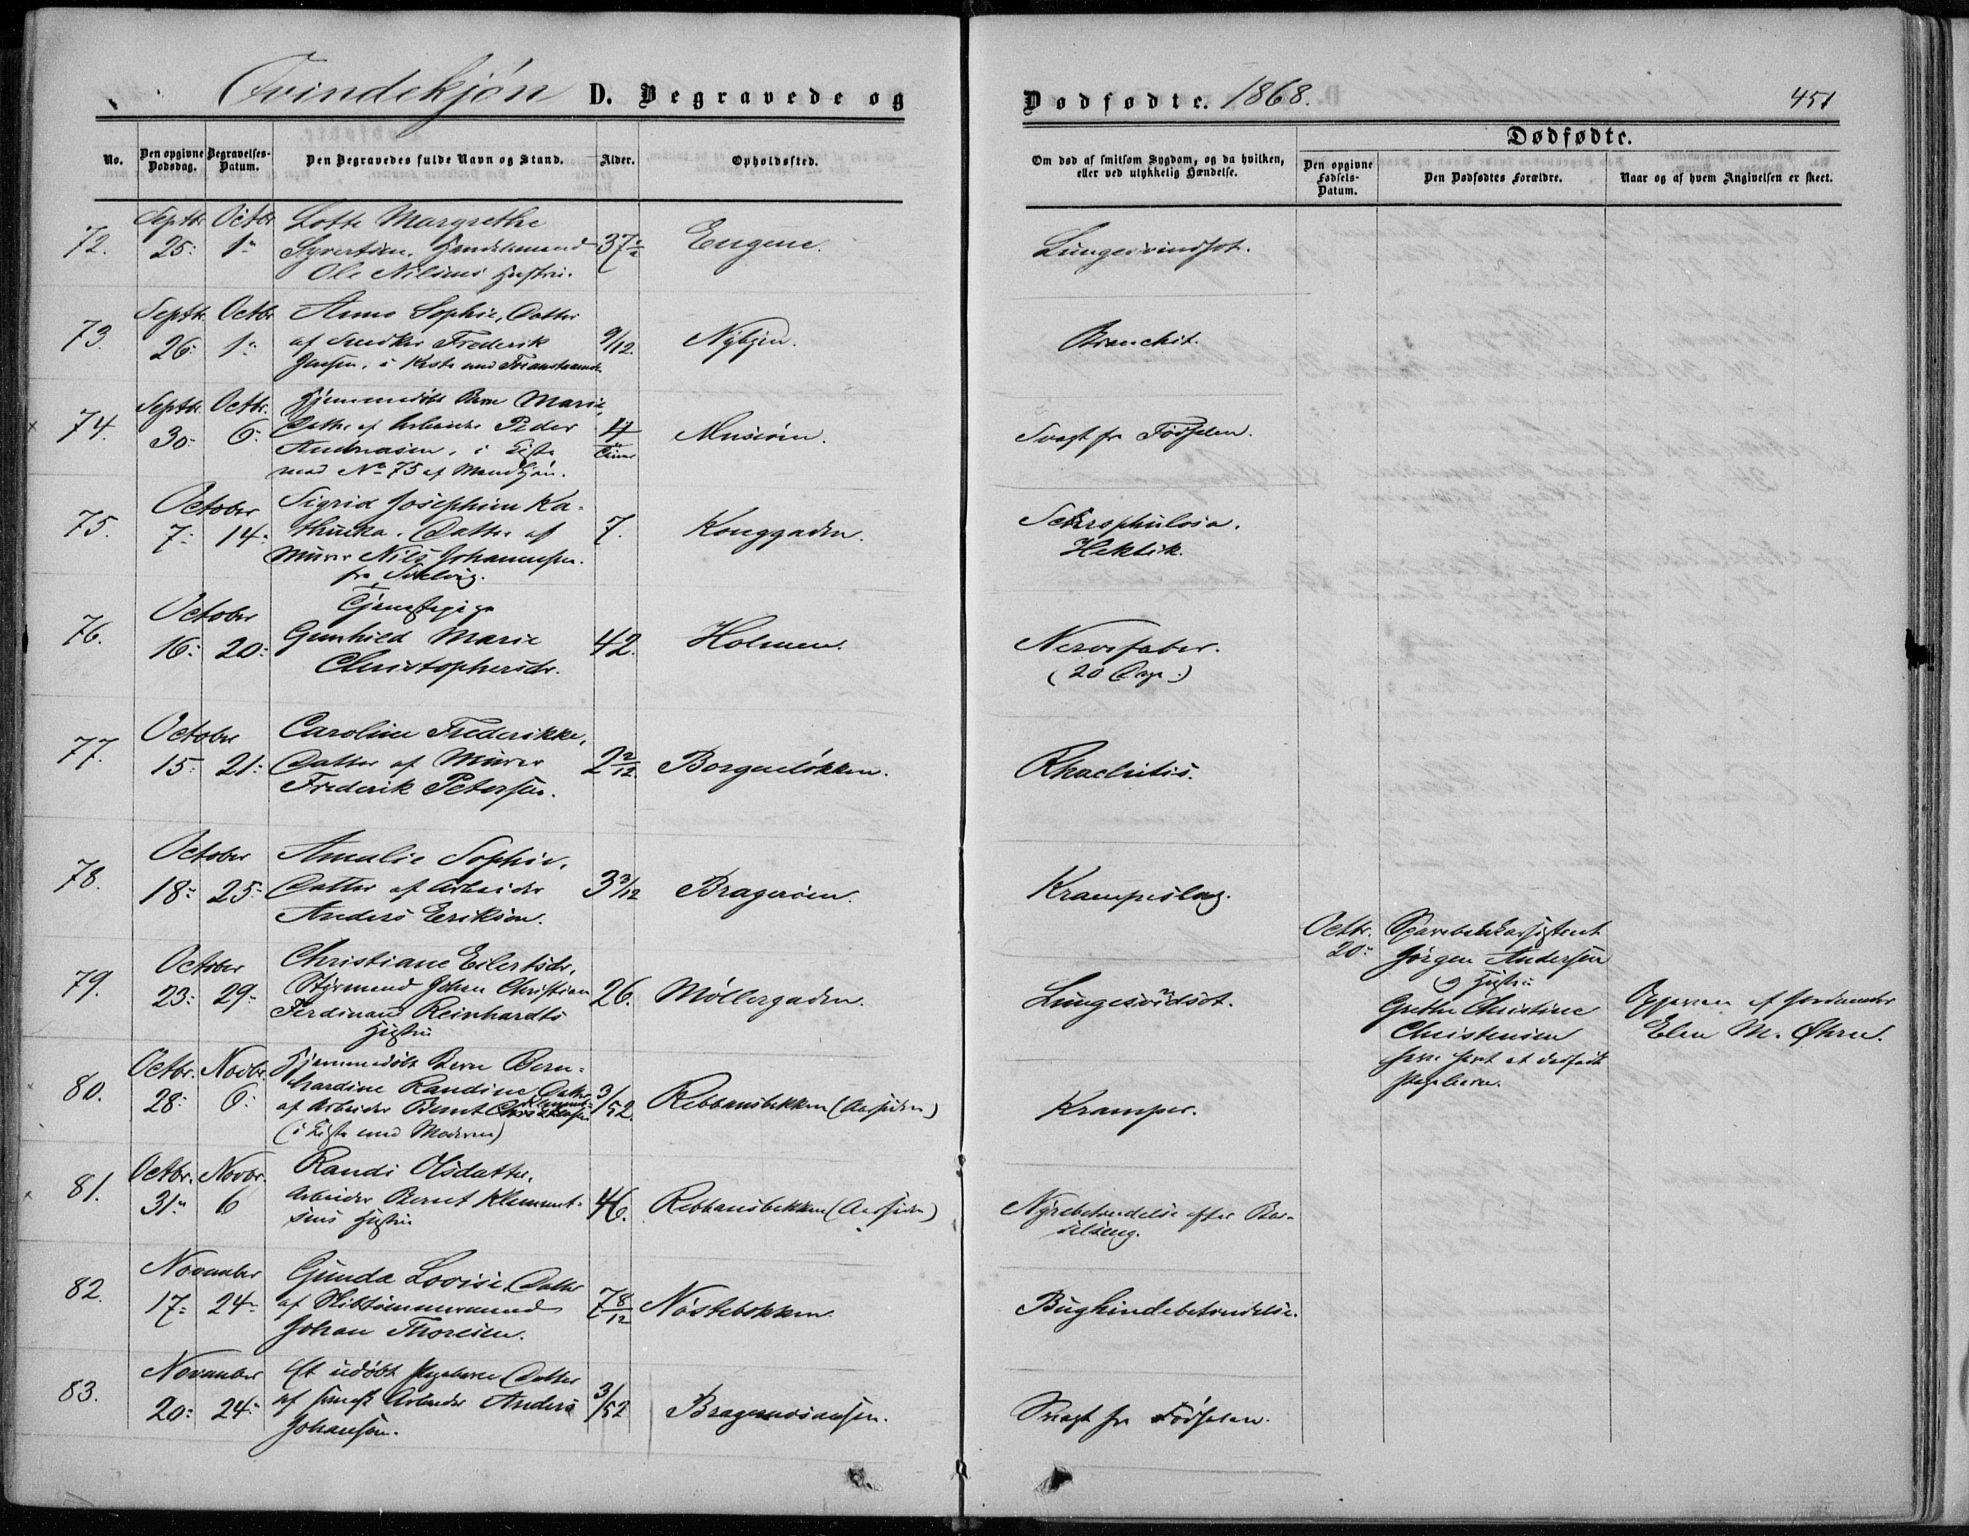 Qvindekjøn D. Begravede og
Dødfødte. 1868.
451
No.
Den opgivne Dødsdag.
Begravelses-Datum.
Den Begravedes fulde Navn og Stand.
Alder.
Opholdssted.
Om død af smitsom Sygdom, og da hvilken, eller ved ulykkelig Hændelse.
Dødfødte.
Den opgivne Fødsels-Datum.
Den Dødfødtes Forældre.
Naar og af hvem Angivelsen er skeet.
72.
Septbr. 25:
Octbr. 1:
Lotte Margrethe
Syvertsen, Handelsmand
Ole Nilsens Hustru.
37
Engene.
Lungesvindsot.
73.
Septbr. 26:
Octbr. 1:
Anne Sophie, Datter
af Snedker Frederik
Jensen, i Kiste med
9/12.
Nybyen.
Bronchit.
74.
Septbr. 30:
Octbr. 6:
Hjemmedøbt Barn Marie,
Datter af Arbeider Peder
Andreasen, i Kiste
med No 75 af Mandkjøn.
4 Timer
Svagt fra Fødselen.
75.
October
7: 14:
Sigrid Josephine Ka-
thinka. Datter af
Murer Nils Johannesen
fra
7.
Konggaden.
Schrophulosa.
Hektik.
76.
October
16: 20:
Tjenestepige
Gunhild Marie
Christophersdr.
42.
Holmen.
Nervefeber.
(20 Dage.)
77.
October
15: 21:
Caroline Frederikke,
Datter af Murer
Frederik Petersen.
2 2/12.
Borgerløkken.
Rhachitis.
78.
October
18: 25:
Amalie Sophie.
Datter af Arbeider
Anders Eriksen.
3 3/12
Bragerøen.
Krampeslag.
79.
October
23: 29:
Christiane Eilertsdr,
Styrmand Johan Christian
Ferdinand Reinhardts
Hustru
26.
Møllergaden.
Lungesvindsot.
Octbr. 20:
Sparebankassistent
Jørgen Andersen
og Hustru
Grethe Christine
Christensen
have havt et dødfødt
Pigebarn.
Opgiven af Jordemoder
Elen M. Øhrn.
80.
Octbr. 28:
Novbr. 6:
Hjemmedøbt Barn Bern-
hardine Randine, Datter
af Arbeider Bernt Klementsen
(i Kiste med Moderen)
3/52.
Rebbansbekken (Aassiden)
Kramper.
81.
Octbr. 31:
Novbr. 6
Randi Olsdatter,
Arbeider Bernt Klement-
sens Hustru
46.
Rebbansbekken (Aassiden)
Nyrebetændelse efter Bar-
selseng.
82.
November
17: 24:
Gunda Lovise, Datter
af Skibstømmermand
Johan Thoresen.
7 8/12
Nøstebekken.
Bughindebetændelse.
83.
November
20: 24:
Et udøbt Pigebarn Datter
af Arbeider Anders
Johansen.
3/52
Bragernesaasen.
Svagt fra Fødselen.